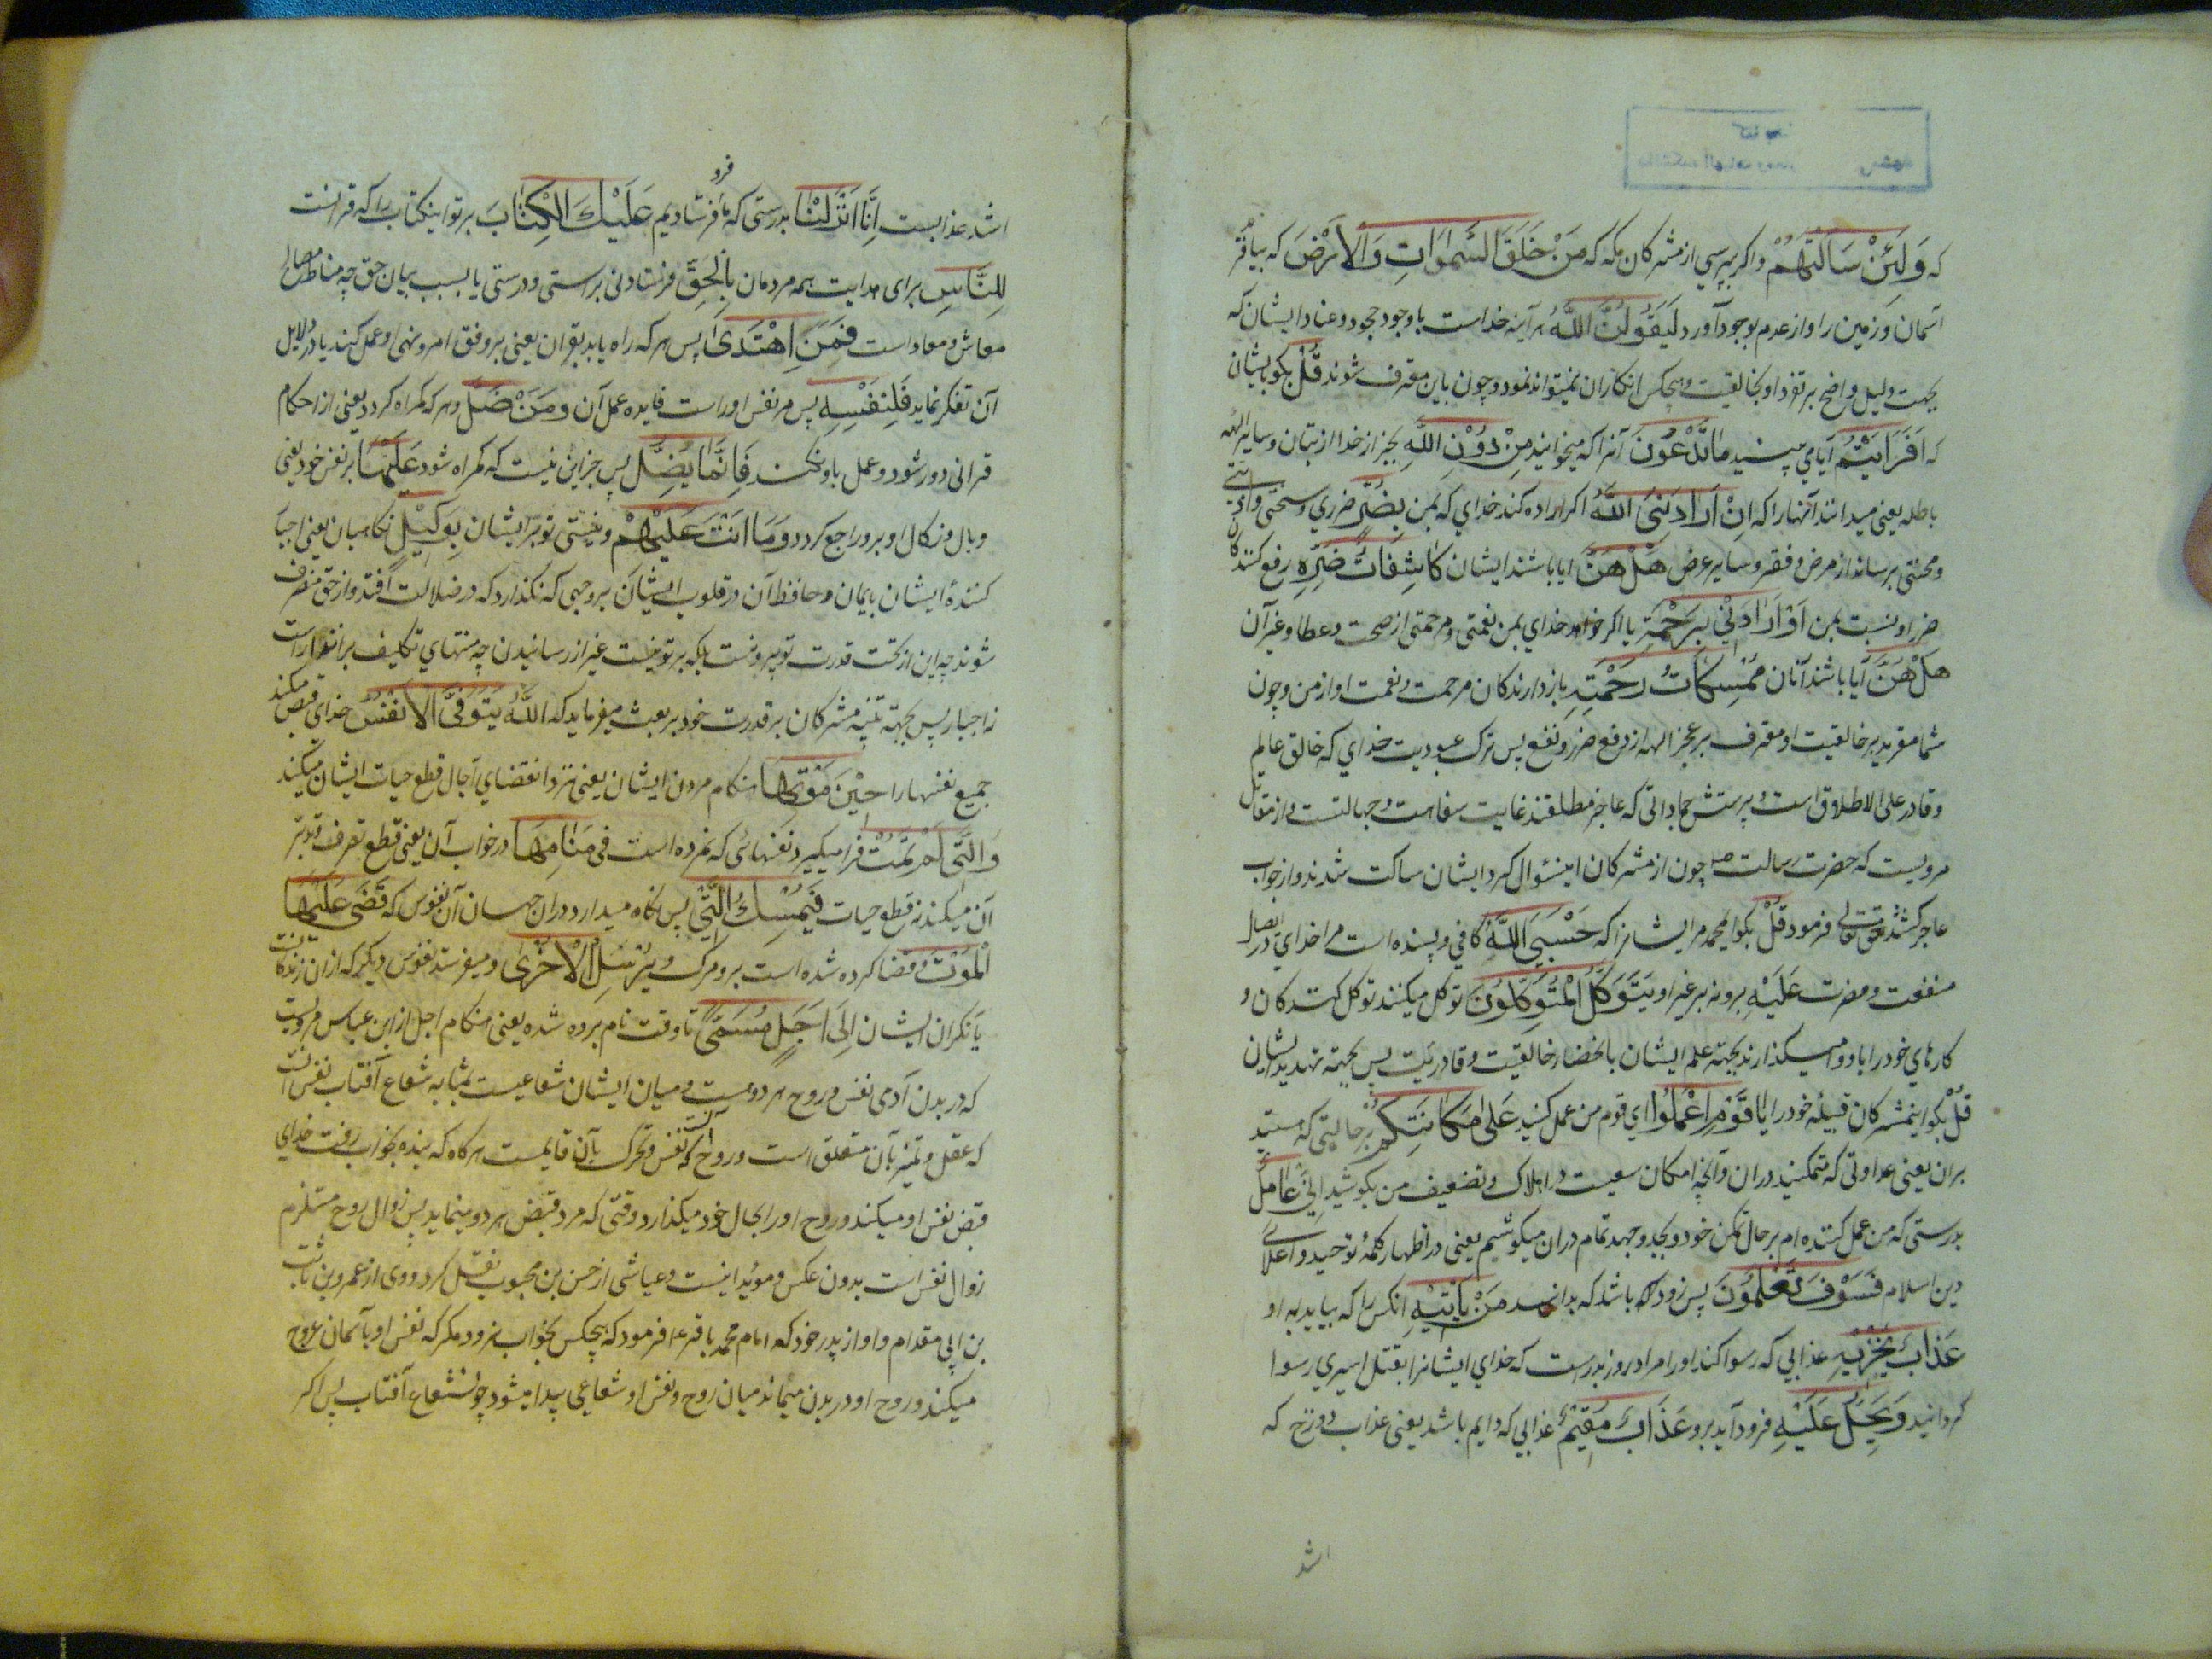 که وَلَئِنْ سَأَلْتَهُمْ واکر بپرسی از مشرکان مکه که مَنْ خَلَقَ السَّمٰوَاتِ وَالْأَرْضَ که بیافرید
آسمان و زمین را و از عدم بوجود آورد لَيَقُولُنَّ اللَّهُ هر آینه خداست با وجود جحود و عناد ایشان که
بجهت دلیل واضح بر تفرد او بخالقیت و هیچکس انکار آن نمیتواند نمود و چون باین معترف شوند قُلْ بکو بایشان
که اَفَرَاَيْتُمْ آیا می بینید مَا تَدْعُونَ آنرا که میخوانید مِنْ دُوْنِ اللَّهِ بجز از خدا از بتان و سایر آلهه
باطله یعنی میدانید آنها را که اِنْ اَرَادَنِیَ اللَّهُ اکر اراده کند خدای که بمن بِضُرٍّ ضرری و سختی و
و محنتی برساند از مرض و فقر و سایر عرض هَلْ هُنَّ ایا باشند ایشان كَاشِفَاتُ ضُرِّهِ رفع کنندکان
ضرر او نسبت بمن اَوْ اَرَادَنِيْ بِرَحْمَةٍ یا اکر خواهد خدای بمن نعمتی و مرحمتی از صحت و عطا و غیر آن
هَلْ هُنَّ آیا باشند آنان مُمْسِكَاتُ رَحْمَتِهِ بازدارندکان مرحمت و نعمت او از من و چون
شما مقرید بر خالقیت او و معترف بر عجز الهه از دفع ضرر و نفع پس ترک عبودیت خدای که خالق عالم
و قادر علی الاطلاق است و پرستش جماداتی که عاجز مطلقند غایت سفاهت و جهالتست و از مقاتل
مرویست که حضرت رسالت ص چون از مشرکان این سؤال کرد ایشان ساکت شدند و از جواب
عاجز کشتند حق تعالی فرمود قُلْ بکو ای محمد مر ایشانرا که حَسْبِيَ اللَّهُ کافی و پسنده است مرا خدای در ایصال
منفعت و مضرت عَلَيْهِ برو نه بر غیر او يَتَوَكَّلُ الْمُتَوَكِّلُونَ توکل میکنند توکل کنندکان و
کارهای خود را باو وا میکذارند بجهة علم ایشان بانحصار خالقیت و قادریت پس بجهة تهدید ایشان
قُلْ بکو ای مشرکان قبیلهٔ خود را یَا قَوْمِ اعْمَلُوا ای قوم من عمل کنید عَلٰی مَكَانَتِكُمْ بر حالتی که هستید
بران یعنی عداوتی که متمکنید دران و آنچه امکان سعیست در اهلاک و تضعیف من بکوشید اِنِّي عَامِلٌ
بدرستی که من عمل کننده ام بر حال تمکن خود و بجد و جهد تمام دران میکوشیم یعنی در اظهار کلمهٔ توحید و اعلای
دین اسلام فَسَوْفَ تَعْلَمُوْنَ پس زود باشد که بدانید مَنْ يَأْتِيْهِ انکس را که بیاید به او
عَذَابٌ يُخْزِيْهِ عذابی که رسوا کند او را مراد روز بدرست که خدای ایشانرا بقتل اسیری رسوا
کردانید وَيَحِلُّ عَلَيْهِ فرود آید برو عَذَابٌ مُقِيْمٌ عذابی که دایم باشد یعنی عذاب دوزخ که
اشد
فرو
اشد عذابست اِنَّا اَنْزَلْنَا بدرستی که ما فرستادیم عَلَيْكَ الْكِتَابَ بر تو این کتاب را که قرانست
لِلنَّاسِ برای هدایت همه مردمان بِالْحَقِّ فرستادنی براستی و درستی یا بسبب بیان حق چه مناط مصالح
معاش و معاد است فَمَنِ اهْتَدٰی پس هر که راه یابد بقران یعنی بر وفق امر و نهی او عمل کند یا در دلایل
آن تفکر نماید فَلِنَفْسِهِ پس مر نفس او راست فایده عمل آن وَمَنْ ضَلَّ و هر که کمراه کردد یعنی از احکام
قرانی دور شود و عمل باو نکند فَاِنَّمَا يَضِلُّ پس جز این نیست که کمراه شود عَلَيْهَا بر نفس خود یعنی
وبال و نکال او برو راجع کردد وَمَا اَنْتَ عَلَيْهِمْ و نیستی تو بر ایشان بِوَكِيْلٍ نکاهبان یعنی اجبار
کنندهٔ ایشان بایمان و حافظ آن در قلوب ایشان بر وجهی که نکذارد که در ضلالت افتد و از حق منحرف
شوند چه این از تحت قدرت تو بیرونست بلکه بر تو نیست غیر از رسانیدن چه منتهای تکلیف بر انذار است
نه اجبار پس بجهة تنبیه مشرکان بر قدرت خود بر بعث میفرماید که اَللَّهُ يَتَوَفَّى الْاَنْفُسَ خدای قبض میکند
جمیع نفسها را حِيْنَ مَوْتِهَا هنکام مردن ایشان یعنی نزد انقضای آجال قطع حیات ایشان میکند
وَالَّتِيْ لَمْ تَمُتْ فرا میکیرد نفسهائی که نمرده است فِيْ مَنَامِهَا در خواب آن یعنی قطع تصرف و تدبیر
آن میکند نه قطع حیات فَيُمْسِكُ الَّتِيْ پس نکاه میدارد دران جهان آن نفوس که قَضٰی عَلَيْهَا
الْمَوْتَ قضا کرده شده است برو مرک وَيُرْسِلُ الْاُخْرٰی و میفرستد نفوس دیکر که ازان زندکانست
یا نکران ایشان اِلٰی اَجَلٍ مُسَمًّی تا وقت نام برده شده یعنی هنکام اجل از ابن عباس مرویست
که در بدن آدمی نفس و روح هر دو هست و میان ایشان شعاعیست بمثابه شعاع آفتاب نفس آنست
که عقل و تمیز بآن متعلق است و روح آنکه نفس و تحرک بآن قایمست هرکاه که بنده بخواب رفت خدای
قبض نفس او میکند و روح او را بحال خود میکذارد و وقتی که مرد قبض هر دو مینماید پس زوال روح مستلزم
زوال نفس است بدون عکس و مؤید اینست و عیاشی از حسن بن محبوب نقل کرد و وی از عمرو بن ثابت
بن ابی مقدام و او از پدر خود که امام محمد باقر ع فرمود که هیچکس بخواب نرود مکر که نفس او بآسمان عروج
میکند و روح او در بدن میماند میان روح و نفس او شعاعی پیدا میشود چون شعاع آفتاب پس اکر